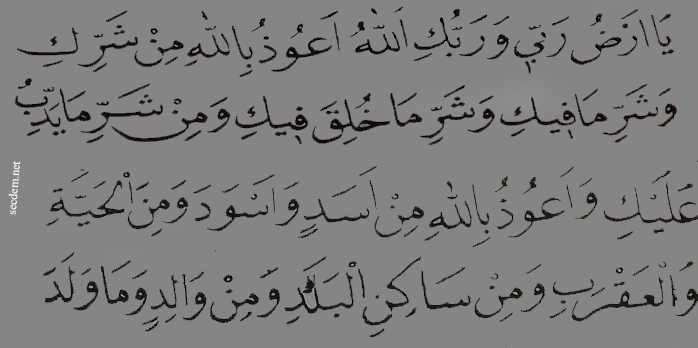 يَا اَرْضُ رَبِّي وَرَبُّكِ اَللّٰهُ اَعُوذُ بِاللّٰهِ مِنْ شَرِّكِ
وَشَرِّ مَا فِيكِ وَشَرِّ مَا خُلِقَ فِيكِ وَمِنْ شَرِّ مَا يَدِبُّ
عَلَيْكِ وَاَعُوذُ بِاللّٰهِ مِنْ اَسَدٍ وَاَسْوَدَ وَمِنَ الْحَيَّةِ
وَالْعَقْرَبِ وَمِنْ سَاكِنِ الْبَلَدِ وَمِنْ وَالِدٍ وَمَا وَلَدَ
seodem.net